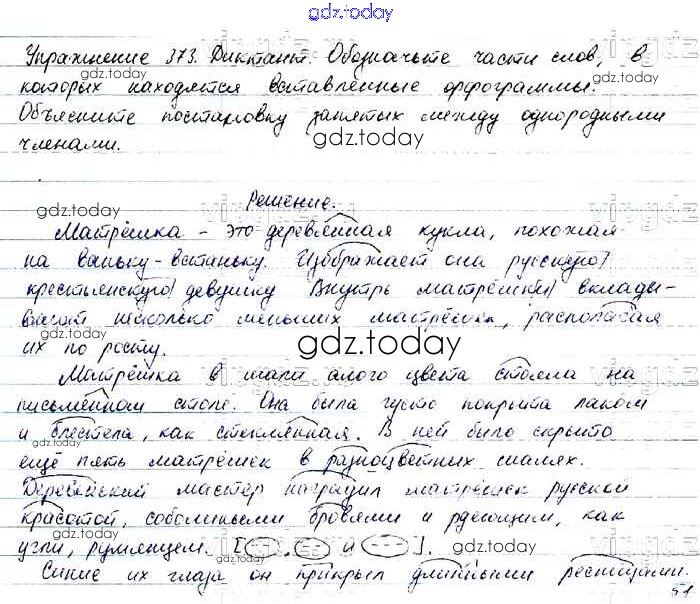 gdz.today
Упражнение 373. Диктант. Обозначьте части слов, в
которых находятся вставленные орфограммы.
Объясните постановку запятых между однородными
членами.
Решение.
Матрёшка - это деревянная кукла, похожая
на ваньку-встаньку. Изображает она русскую
крестьянскую девушку Внутрь матрёшки вклады-
вают несколько меньших матрёшек, располагая
их по росту.
Матрёшка в шали алого цвета стояла на
письменном столе. Она была густо покрыта лаком
и блестела, как стеклянная. В ней было скрыто
ещё пять матрёшек в разноцветных шалях.
Деревенский мастер наградил матрёшек русской
красотой, соболиными бровями и рдеющим, как
угли, румянцем. [ , и ].
Синие их глаза он прикрыл длинными ресницами.
51